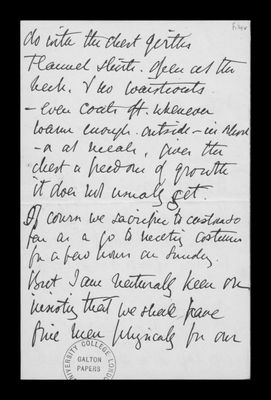 do with the chest girths
Flannel shirts. Open at the
neck, & no waistcoats.
- even coats off, whenever
warm enough. outside - in School
- or at meals, gives the
chest a freedom of growth
it does not usually get.
Of course we sacrifice to custom so
far as a go to meeting costume
for a few hours on Sunday.
But I am naturally keen on
insisting that we shall have
fine men physically for our
UNIVERSITY COLLEGE LONDON
GALTON
PAPERS